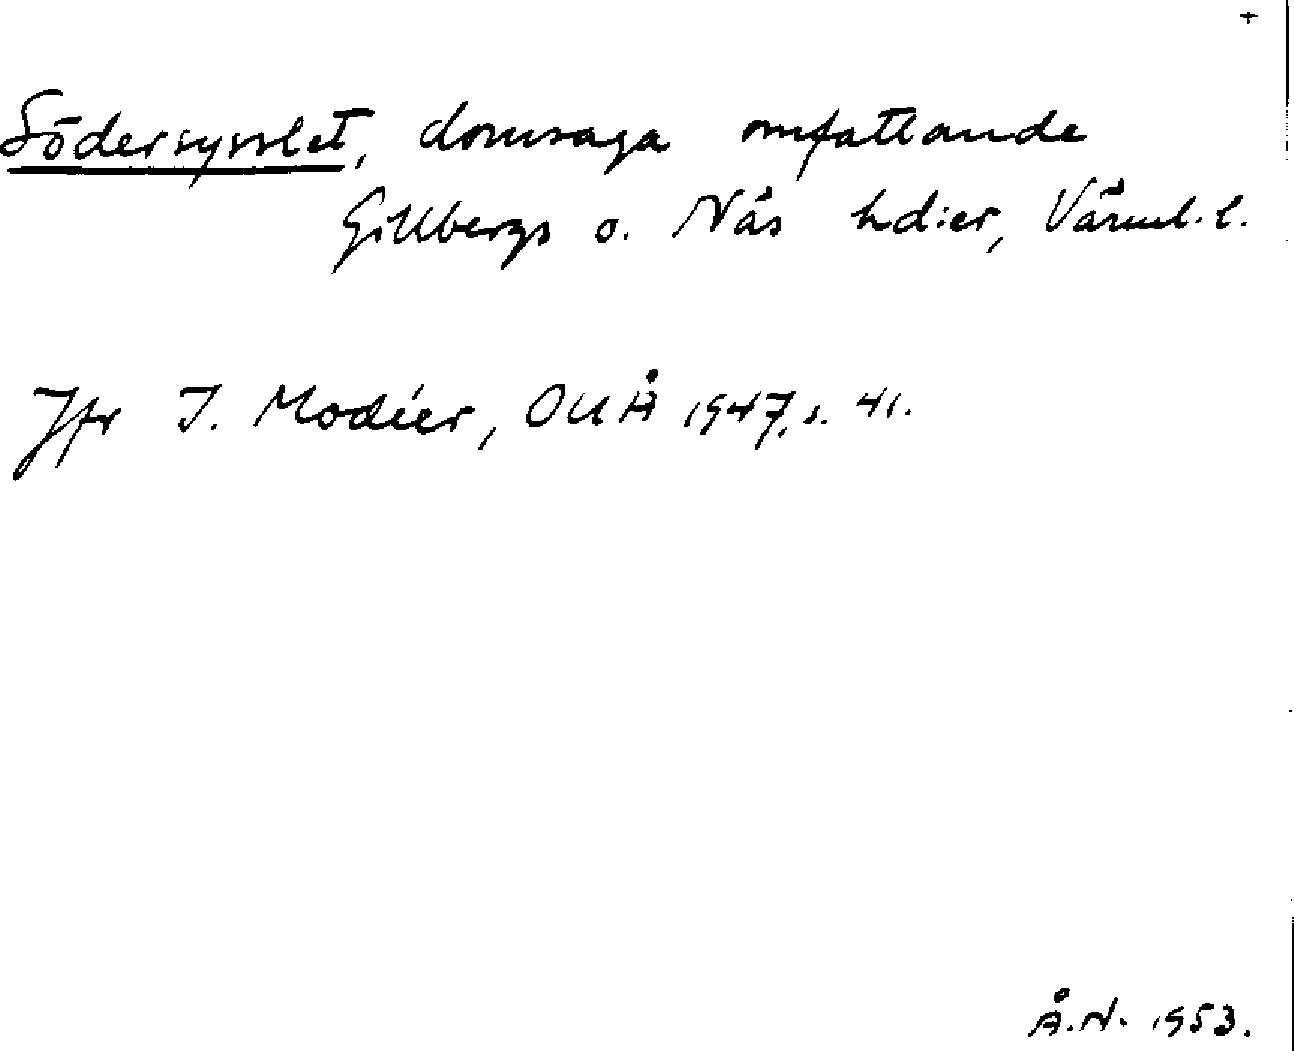 +
Södersysslet, domsaga omfattande
Gillbergs o. Näs hdier, Värml. l.
Jfr I. Modéer, OUÅ 1947, s. 41.
Å.N. 1953.